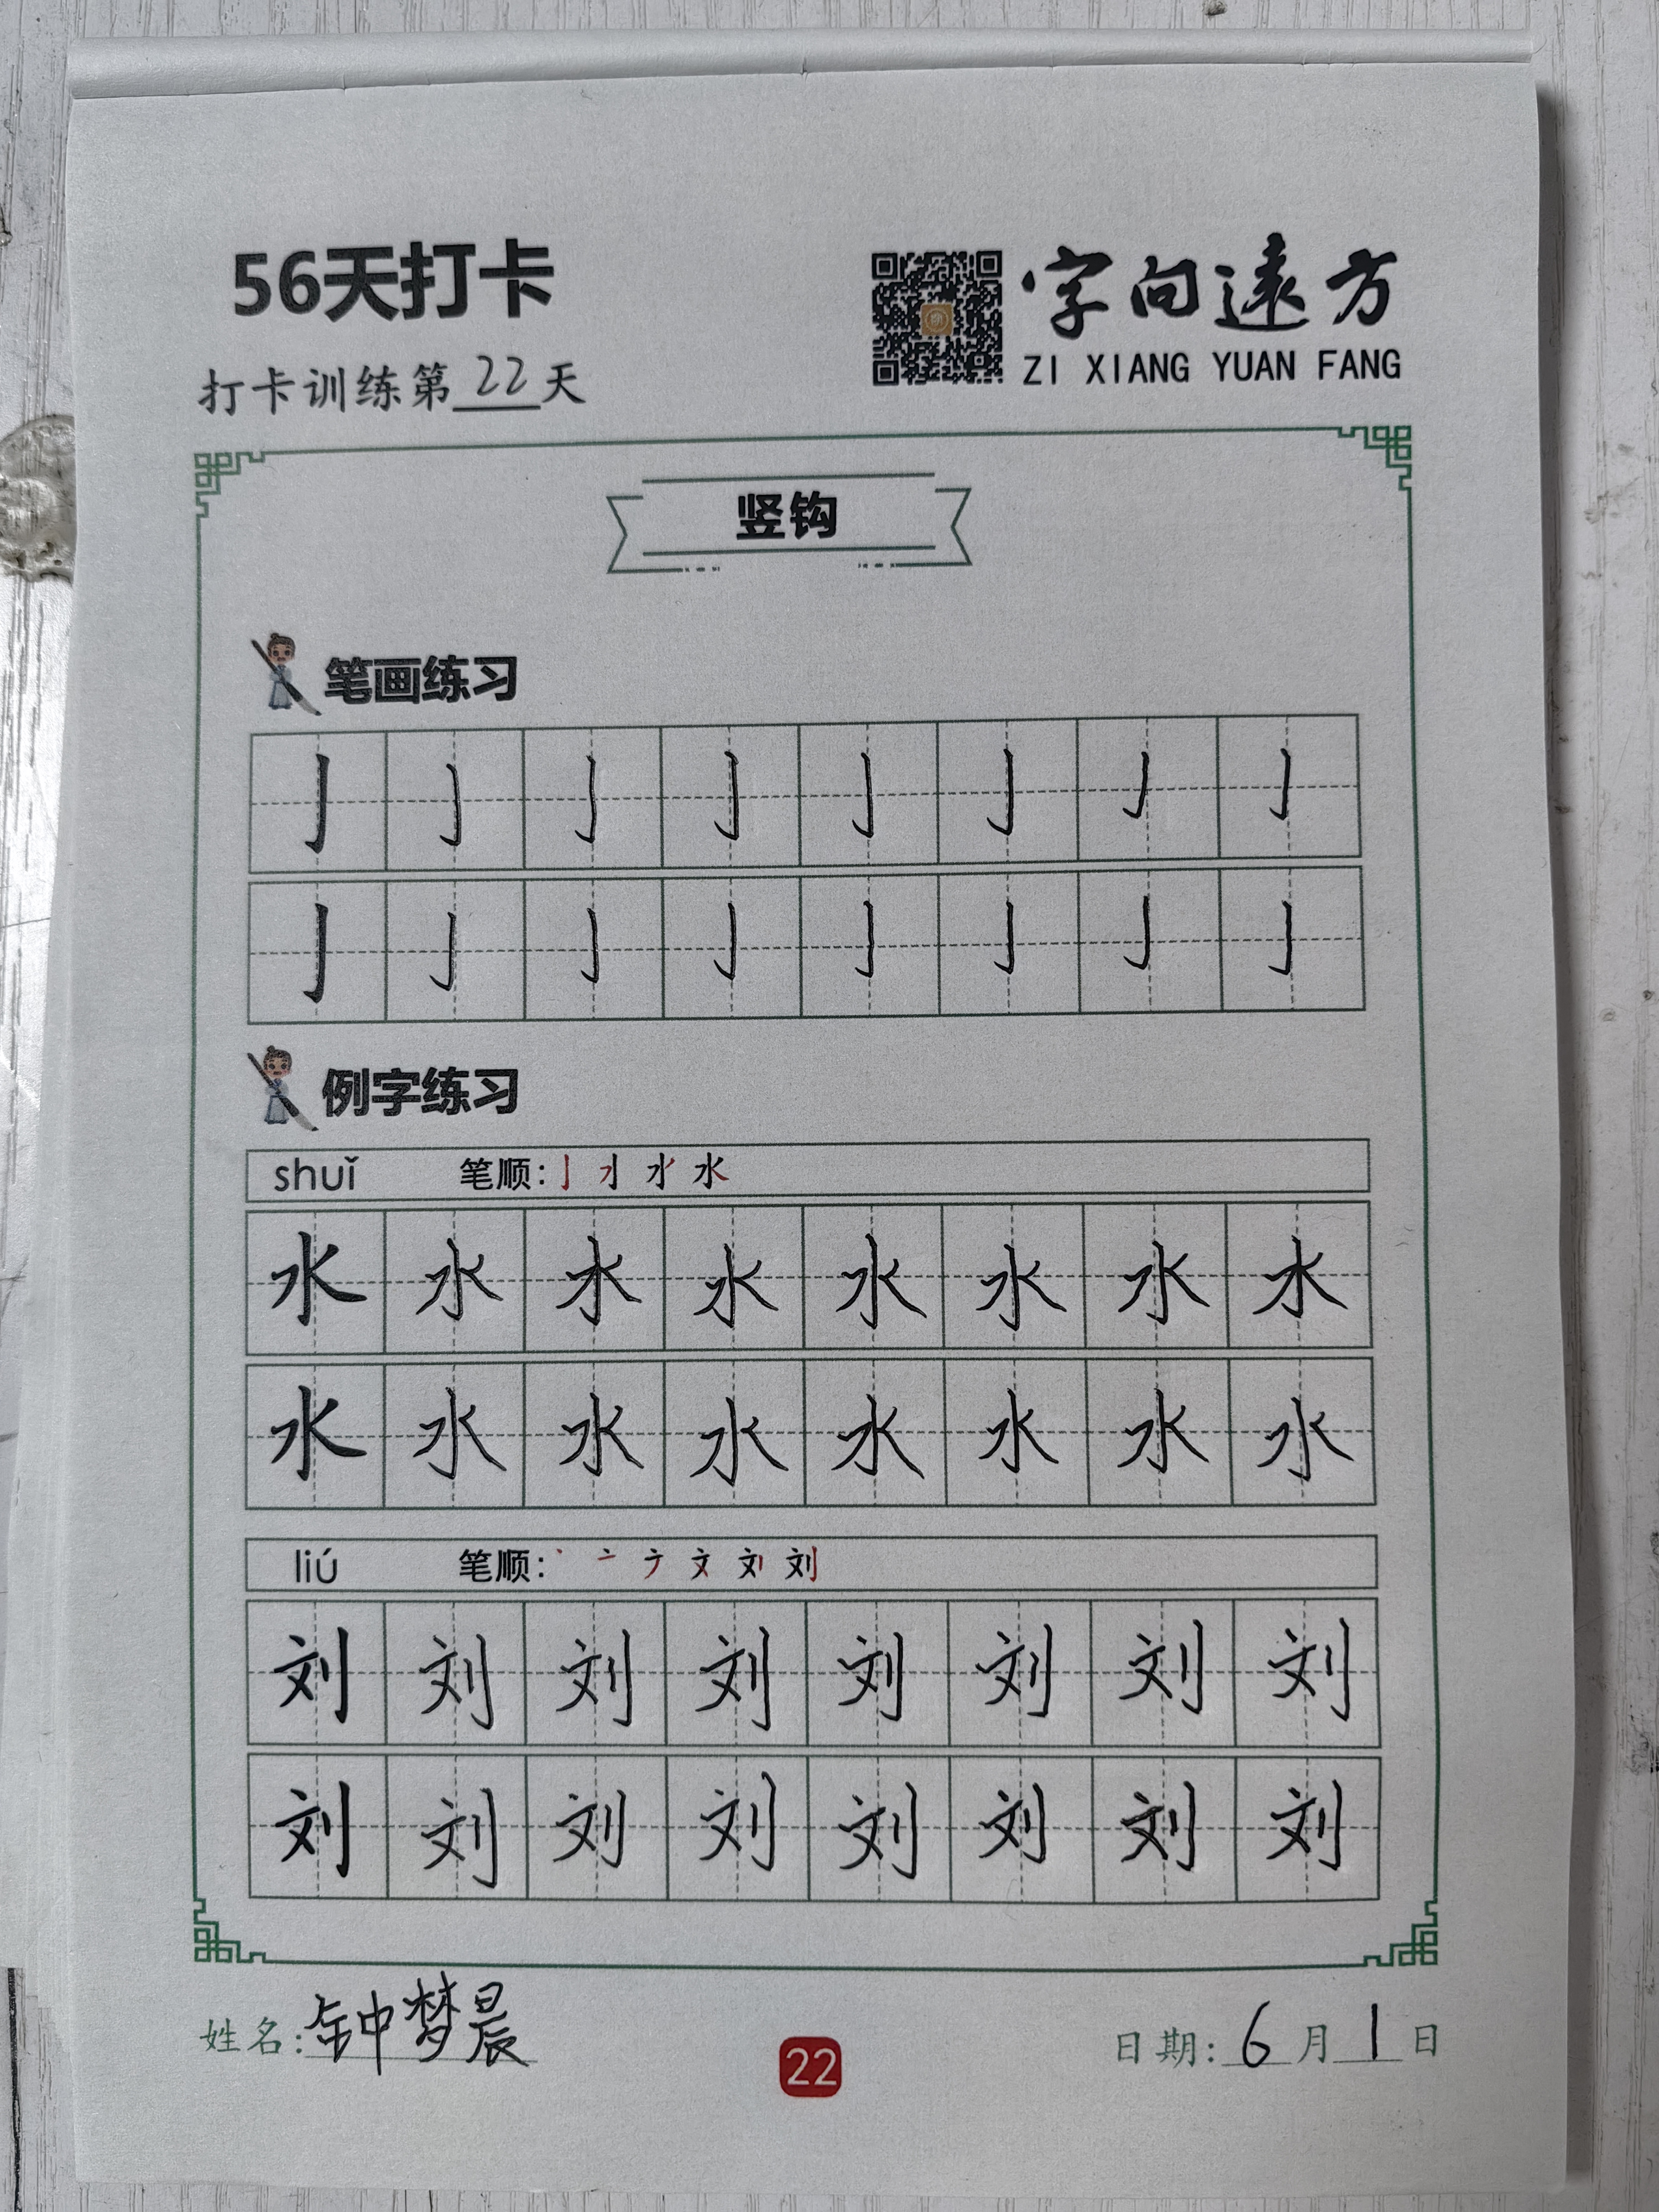 56天打卡
字向遠方
ZI XIANG YUAN FANG
打卡训练第22天
竖钩
笔画练习
亅 亅 亅 亅 亅 亅 亅 亅
亅 亅 亅 亅 亅 亅 亅 亅
例字练习
shuǐ 笔顺: 水
水 水 水 水 水 水 水 水
水 水 水 水 水 水 水 水
liú 笔顺: 刘
刘 刘 刘 刘 刘 刘 刘 刘
刘 刘 刘 刘 刘 刘 刘 刘
姓名:钟梦晨
22
日期:6月1日